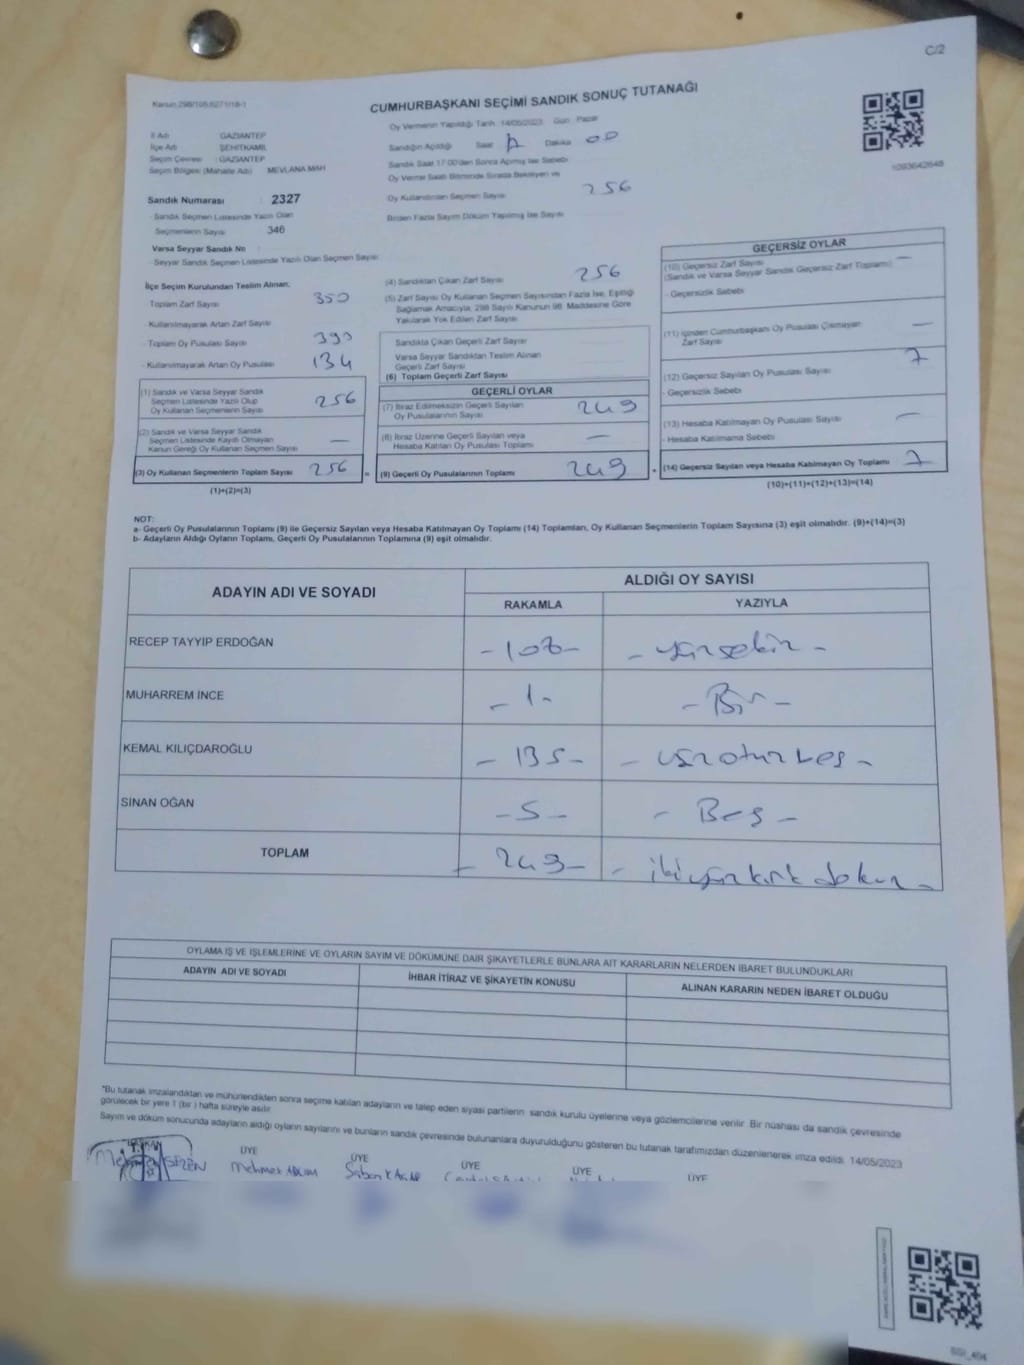 C/2
Kanun:298/105;6271/18-1
CUMHURBAŞKANI SEÇİMİ SANDIK SONUÇ TUTANAĞI
İl Adı : GAZİANTEP
İlçe Adı : ŞEHİTKAMİL
Seçim Çevresi : GAZİANTEP
Seçim Bölgesi (Mahalle Adı) : MEVLANA MAH
Sandık Numarası : 2327
- Sandık Seçmen Listesinde Yazılı Olan
Seçmenlerin Sayısı : 346
Varsa Seyyar Sandık No :
- Seyyar Sandık Seçmen Listesinde Yazılı Olan Seçmen Sayısı :
Oy Vermenin Yapıldığı Tarih : 14/05/2023 Gün : Pazar
Sandığın Açıldığı Saat Dakika 00
Sandık Saat 17:00'den Sonra Açılmış İse Sebebi
Oy Verme Saati Bitiminde Sırada Bekleyen ve
Oy Kullandırılan Seçmen Sayısı 256
Birden Fazla Sayım Döküm Yapılmış İse Sayısı
1093642648
İlçe Seçim Kurulundan Teslim Alınan;
- Toplam Zarf Sayısı : 350
- Kullanılmayarak Artan Zarf Sayısı :
- Toplam Oy Pusulası Sayısı : 390
- Kullanılmayarak Artan Oy Pusulası : 134
(1) Sandık ve Varsa Seyyar Sandık
Seçmen Listesinde Yazılı Olup
Oy Kullanan Seçmenlerin Sayısı 256
(2) Sandık ve Varsa Seyyar Sandık
Seçmen Listesinde Kaydı Olmayan
Kanun Gereği Oy Kullanan Seçmen Sayısı —
(3) Oy Kullanan Seçmenlerin Toplam Sayısı 256 =
(1)+(2)=(3)
(4) Sandıktan Çıkan Zarf Sayısı 256
(5) Zarf Sayısı Oy Kullanan Seçmen Sayısından Fazla İse, Eşitliği
Sağlamak Amacıyla, 298 Sayılı Kanunun 98. Maddesine Göre
Yakılarak Yok Edilen Zarf Sayısı
Sandıkta Çıkan Geçerli Zarf Sayısı
Varsa Seyyar Sandıktan Teslim Alınan
Geçerli Zarf Sayısı
(6) Toplam Geçerli Zarf Sayısı
GEÇERLİ OYLAR
(7) İtiraz Edilmeksizin Geçerli Sayılan
Oy Pusulalarının Sayısı 249
(8) İtiraz Üzerine Geçerli Sayılan veya
Hesaba Katılan Oy Pusulası Toplamı —
(9) Geçerli Oy Pusulalarının Toplamı 249 +
GEÇERSİZ OYLAR
(10) Geçersiz Zarf Sayısı —
(Sandık ve Varsa Seyyar Sandık Geçersiz Zarf Toplamı)
- Geçersizlik Sebebi
(11) İçinden Cumhurbaşkanı Oy Pusulası Çıkmayan
Zarf Sayısı —
(12) Geçersiz Sayılan Oy Pusulası Sayısı 7
- Geçersizlik Sebebi
(13) Hesaba Katılmayan Oy Pusulası Sayısı —
- Hesaba Katılmama Sebebi
(14) Geçersiz Sayılan veya Hesaba Katılmayan Oy Toplamı 7
(10)+(11)+(12)+(13)=(14)
NOT:
a- Geçerli Oy Pusulalarının Toplamı (9) ile Geçersiz Sayılan veya Hesaba Katılmayan Oy Toplamı (14) Toplamları, Oy Kullanan Seçmenlerin Toplam Sayısına (3) eşit olmalıdır. (9)+(14)=(3)
b- Adayların Aldığı Oyların Toplamı, Geçerli Oy Pusulalarının Toplamına (9) eşit olmalıdır.
ADAYIN ADI VE SOYADI ALDIĞI OY SAYISI
RAKAMLA YAZIYLA
RECEP TAYYİP ERDOĞAN -108- - yüzsekiz -
MUHARREM İNCE - 1 - - Bir -
KEMAL KILIÇDAROĞLU - 135 - - yüzotuzbeş -
SİNAN OĞAN - 5 - - Beş -
TOPLAM - 249 - - ikiyüzkırkdokuz -
OYLAMA İŞ VE İŞLEMLERİNE VE OYLARIN SAYIM VE DÖKÜMÜNE DAİR ŞİKAYETLERLE BUNLARA AİT KARARLARIN NELERDEN İBARET BULUNDUKLARI
ADAYIN ADI VE SOYADI İHBAR İTİRAZ VE ŞİKAYETİN KONUSU ALINAN KARARIN NEDEN İBARET OLDUĞU
*Bu tutanak imzalandıktan ve mühürlendikten sonra seçime katılan adayların ve talep eden siyasi partilerin sandık kurulu üyelerine veya gözlemcilerine verilir. Bir nüshası da sandık çevresinde
görülecek bir yere 1 (bir ) hafta süreyle asılır.
Sayım ve döküm sonucunda adayların aldığı oyların sayılarını ve bunların sandık çevresinde bulunanlara duyurulduğunu gösteren bu tutanak tarafımızdan düzenlenerek imza edildi. 14/05/2023
BAŞKAN ÜYE ÜYE ÜYE ÜYE ÜYE
Mehmet Mehmet Şaban